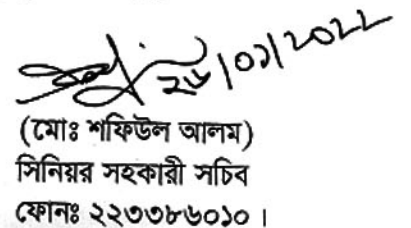 ২৬/০১/২০২২
(মোঃ শফিউল আলম)
সিনিয়র সহকারী সচিব
ফোনঃ ২২৩৩৮৬০১০।